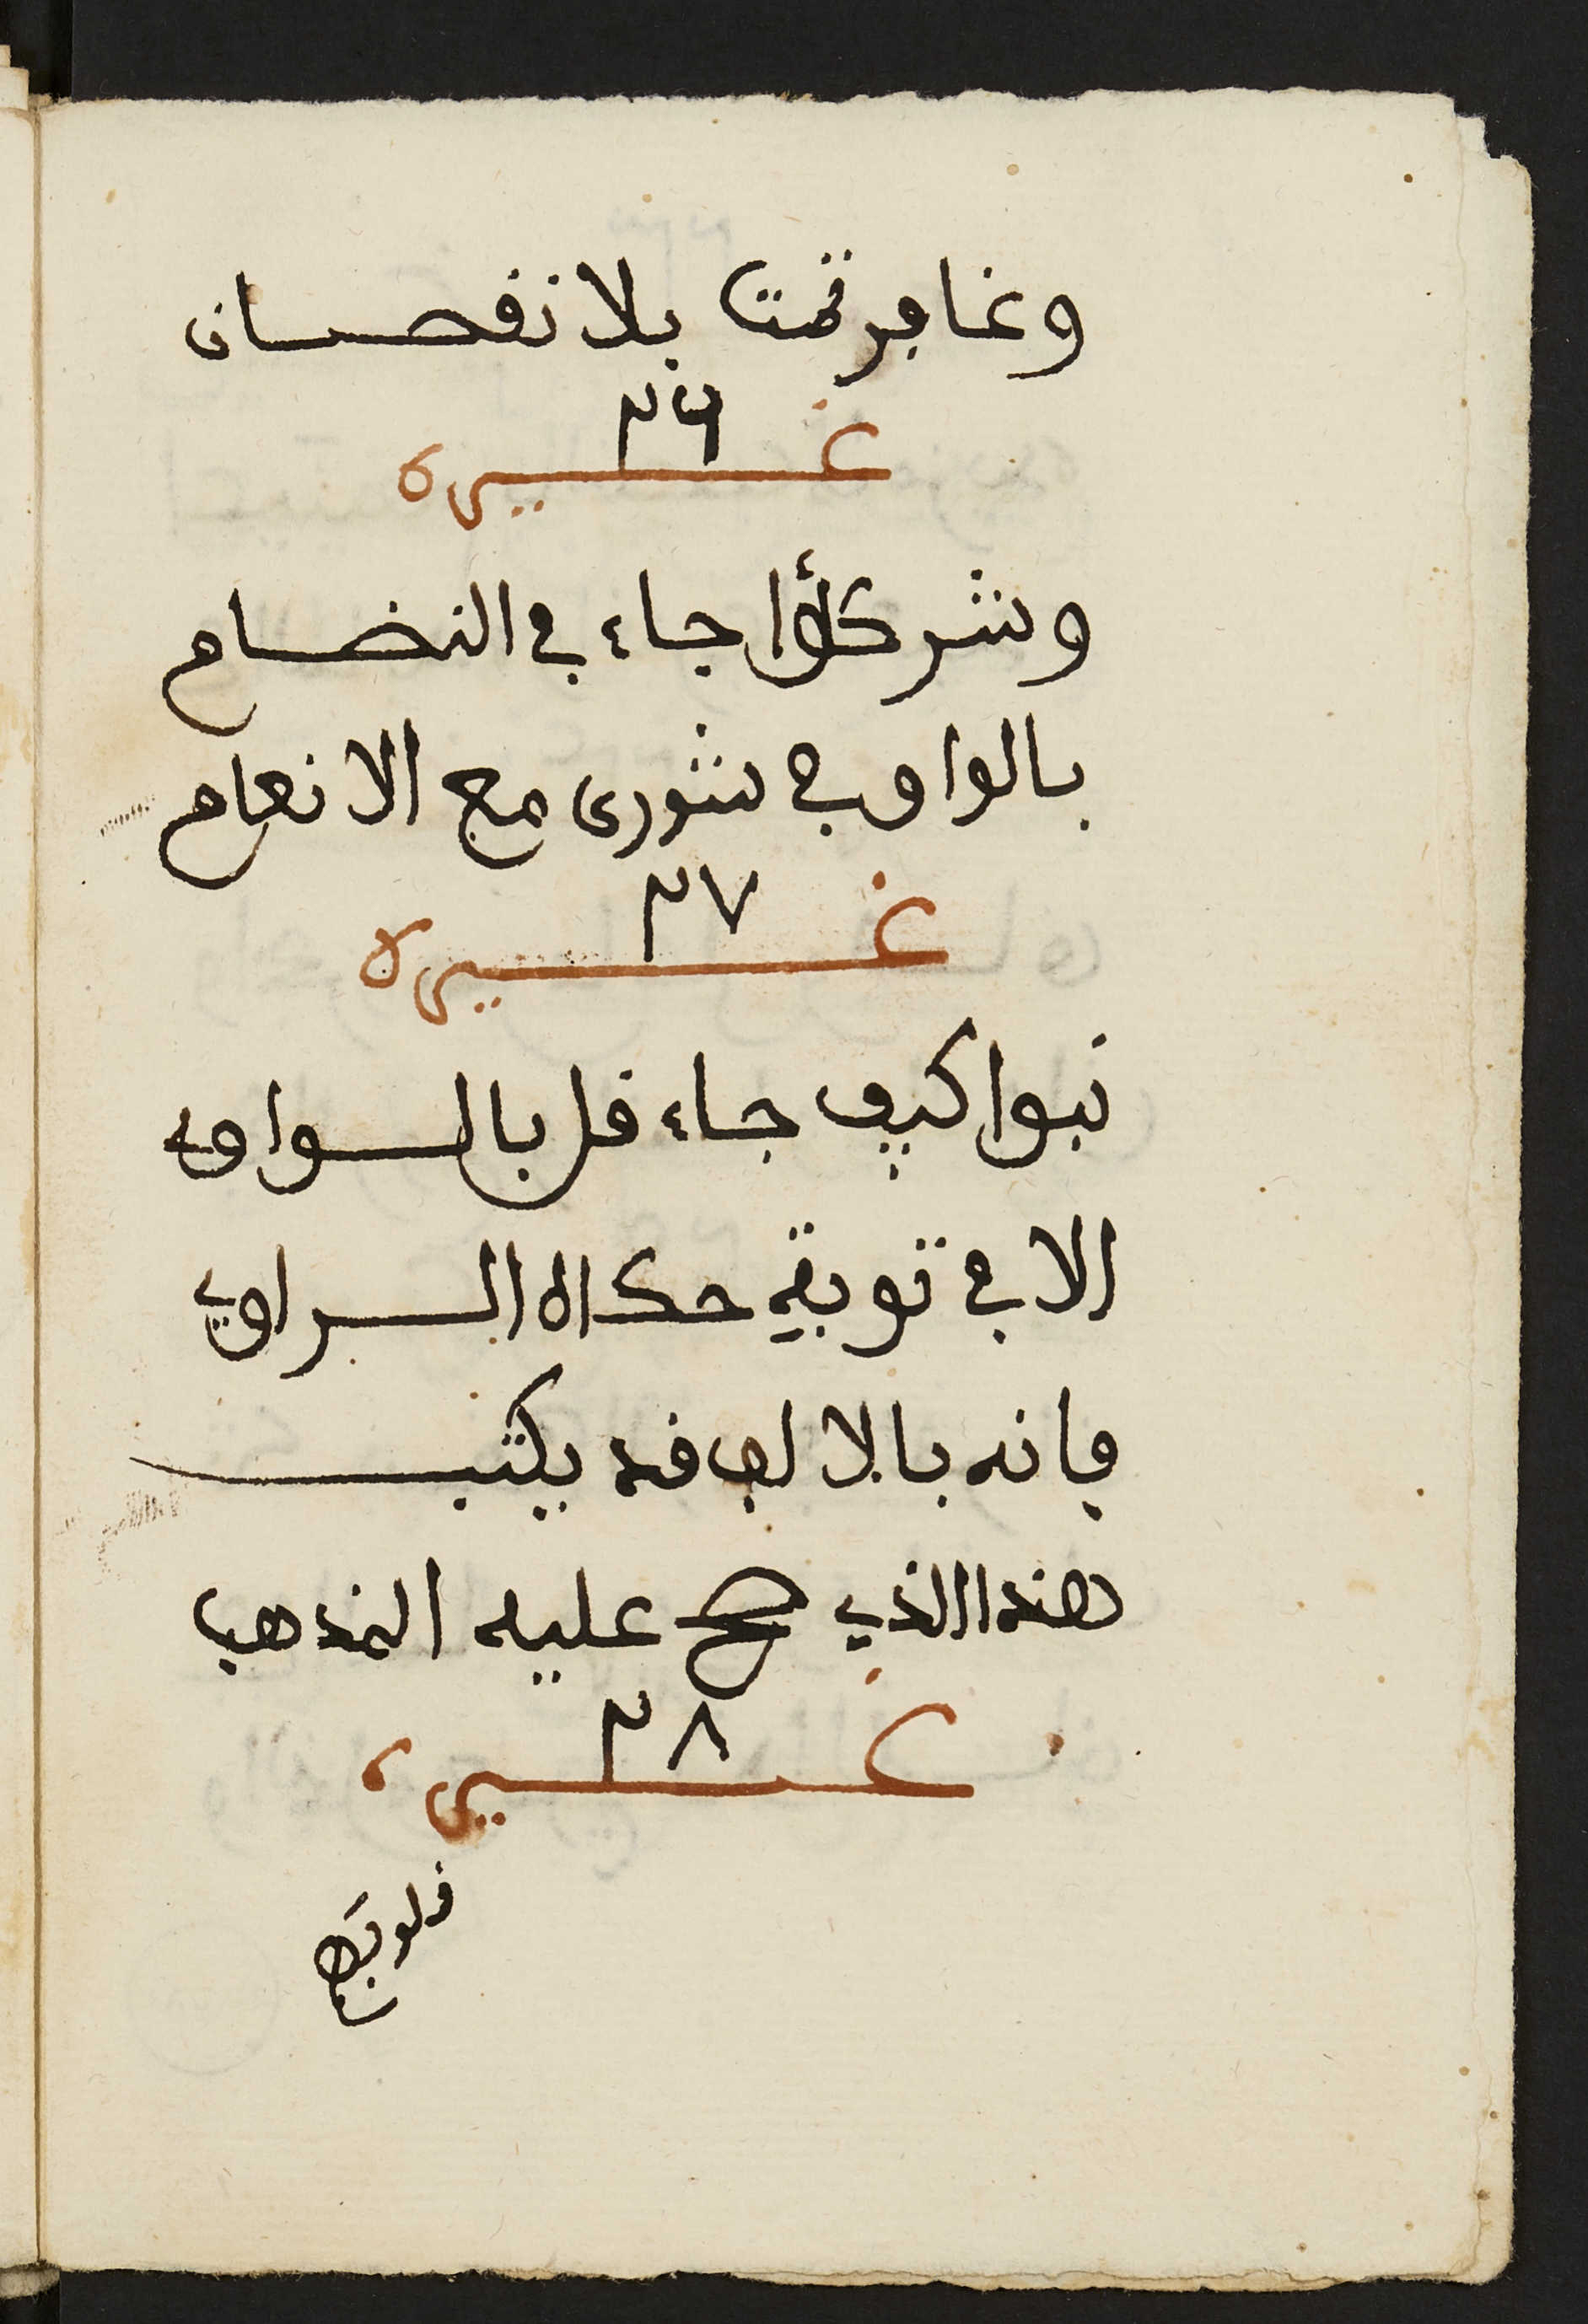 وغافر تمت بلا نقصان
٢٦
غيره
وشركؤا جاء في النضام
بالواو في شورى مع الانعام
٢٧
غيره
نبوا كيف جاء قل بالواو
الا في توبة حكاه الراوي
فانه بالالف قد يكتب
هذا الذي صح عليه المذهب
٢٨
غيره